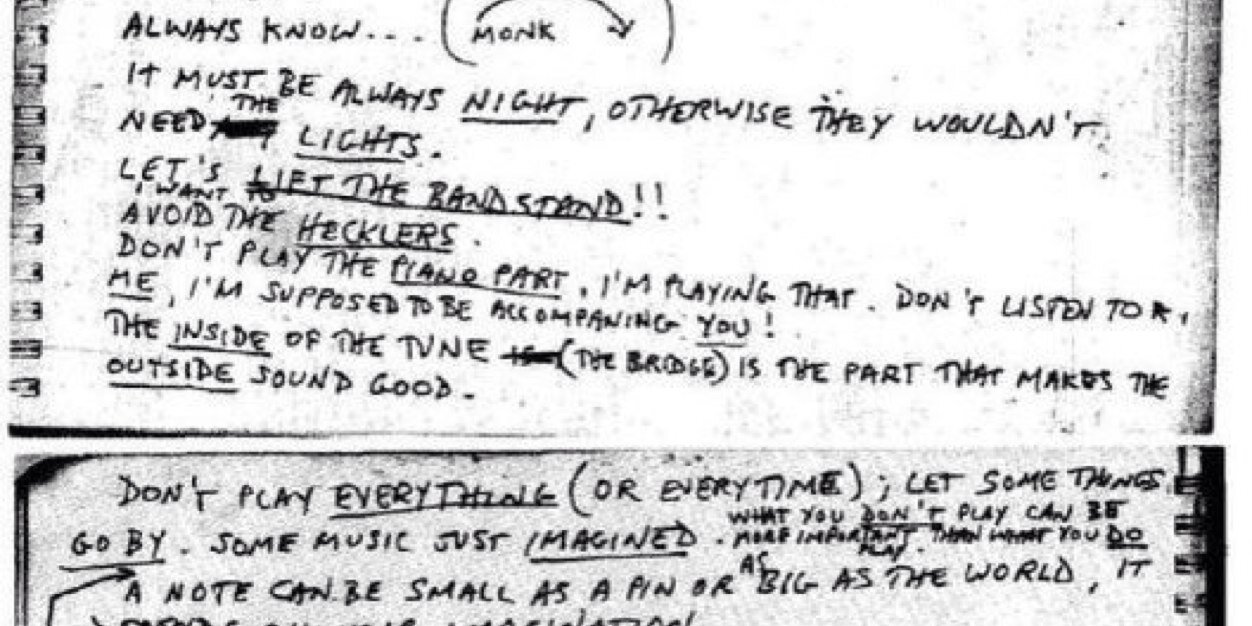 ALWAYS KNOW... (MONK)
IT MUST BE ALWAYS NIGHT, OTHERWISE THEY WOULDN'T
NEED THE LIGHTS.
LET'S LIFT THE BANDSTAND!!
I WANT TO
AVOID THE HECKLERS.
DON'T PLAY THE PIANO PART, I'M PLAYING THAT. DON'T LISTEN TO
ME, I'M SUPPOSED TO BE ACCOMPANING YOU!
THE INSIDE OF THE TUNE (THE BRIDGE) IS THE PART THAT MAKES THE
OUTSIDE SOUND GOOD.
DON'T PLAY EVERYTHING (OR EVERYTIME); LET SOME THINGS
GO BY. SOME MUSIC JUST IMAGINED.
WHAT YOU DON'T PLAY CAN BE
MORE IMPORTANT THAN WHAT YOU DO
PLAY.
A NOTE CAN BE SMALL AS A PIN OR AS BIG AS THE WORLD, IT